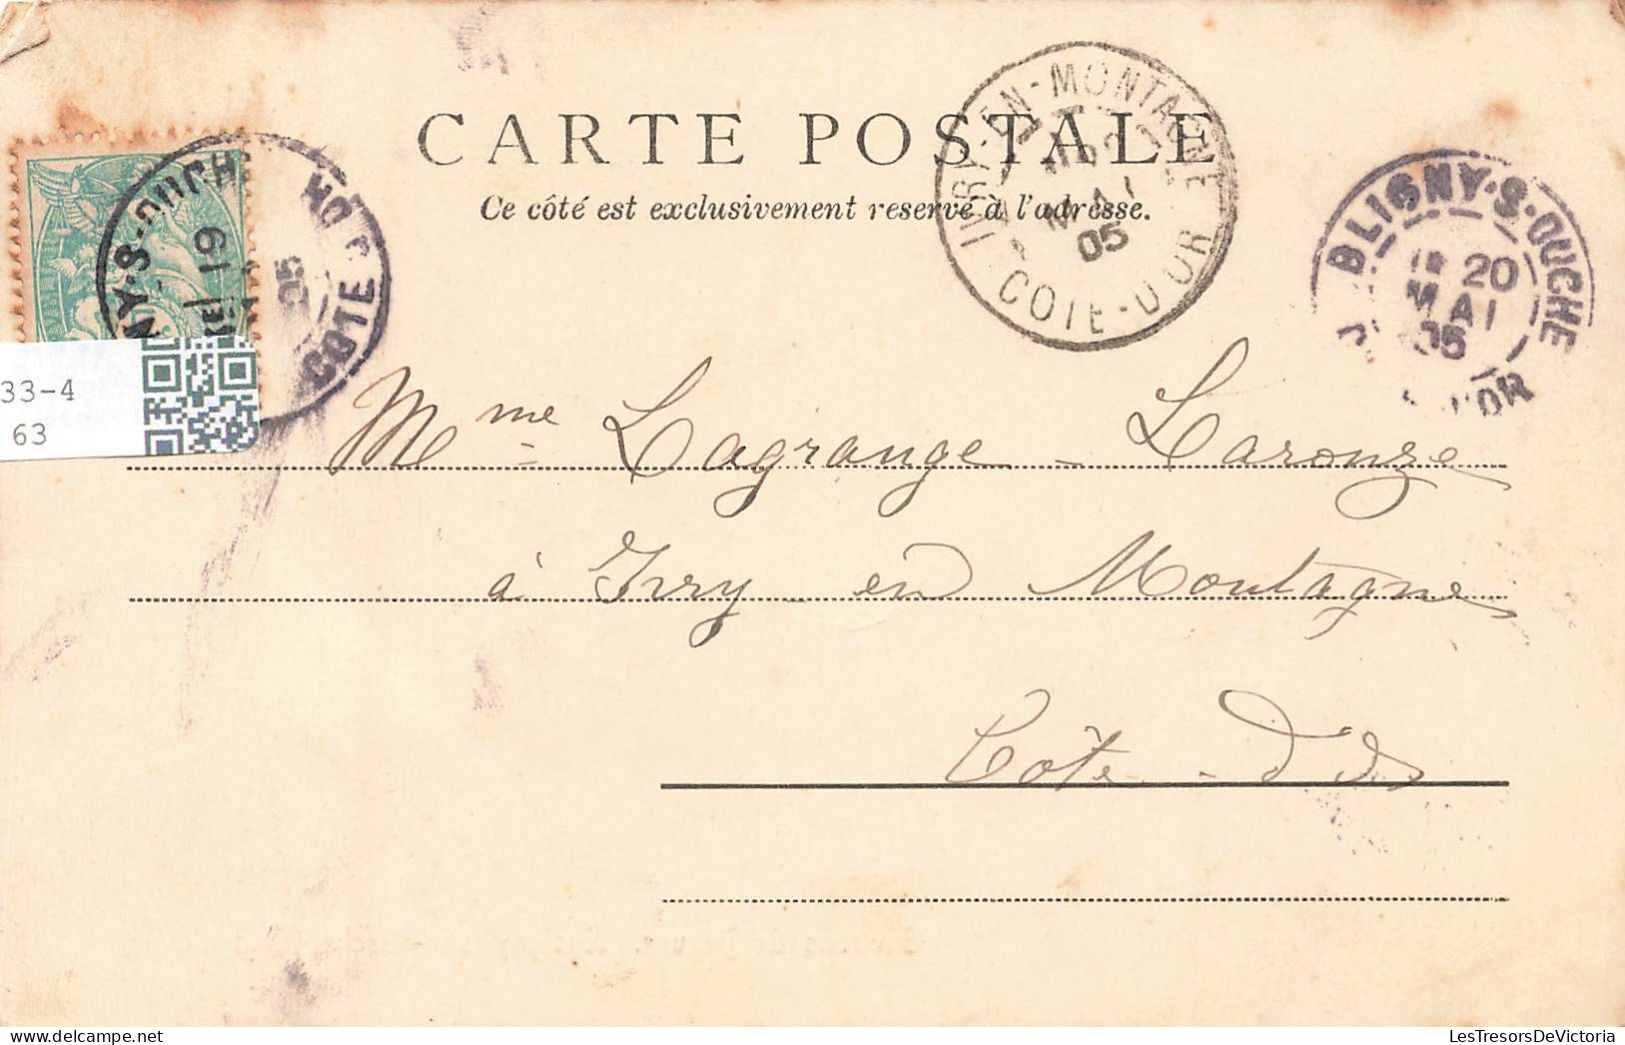 CARTE POSTALE
Ce côté est exclusivement reservé à l'adresse.
IVRY-EN-MONTAGNE
MAI
05
COTE-D'OR
BLIGNY-S-OUCHE
20
MAI
05
D'OR
NY-S-OUCHE
19
05
COTE
33-4
63
Mme Lagrange - Laronze
à Ivry en Montagne
Côte - d'Or
LesTresorsDeVictoria